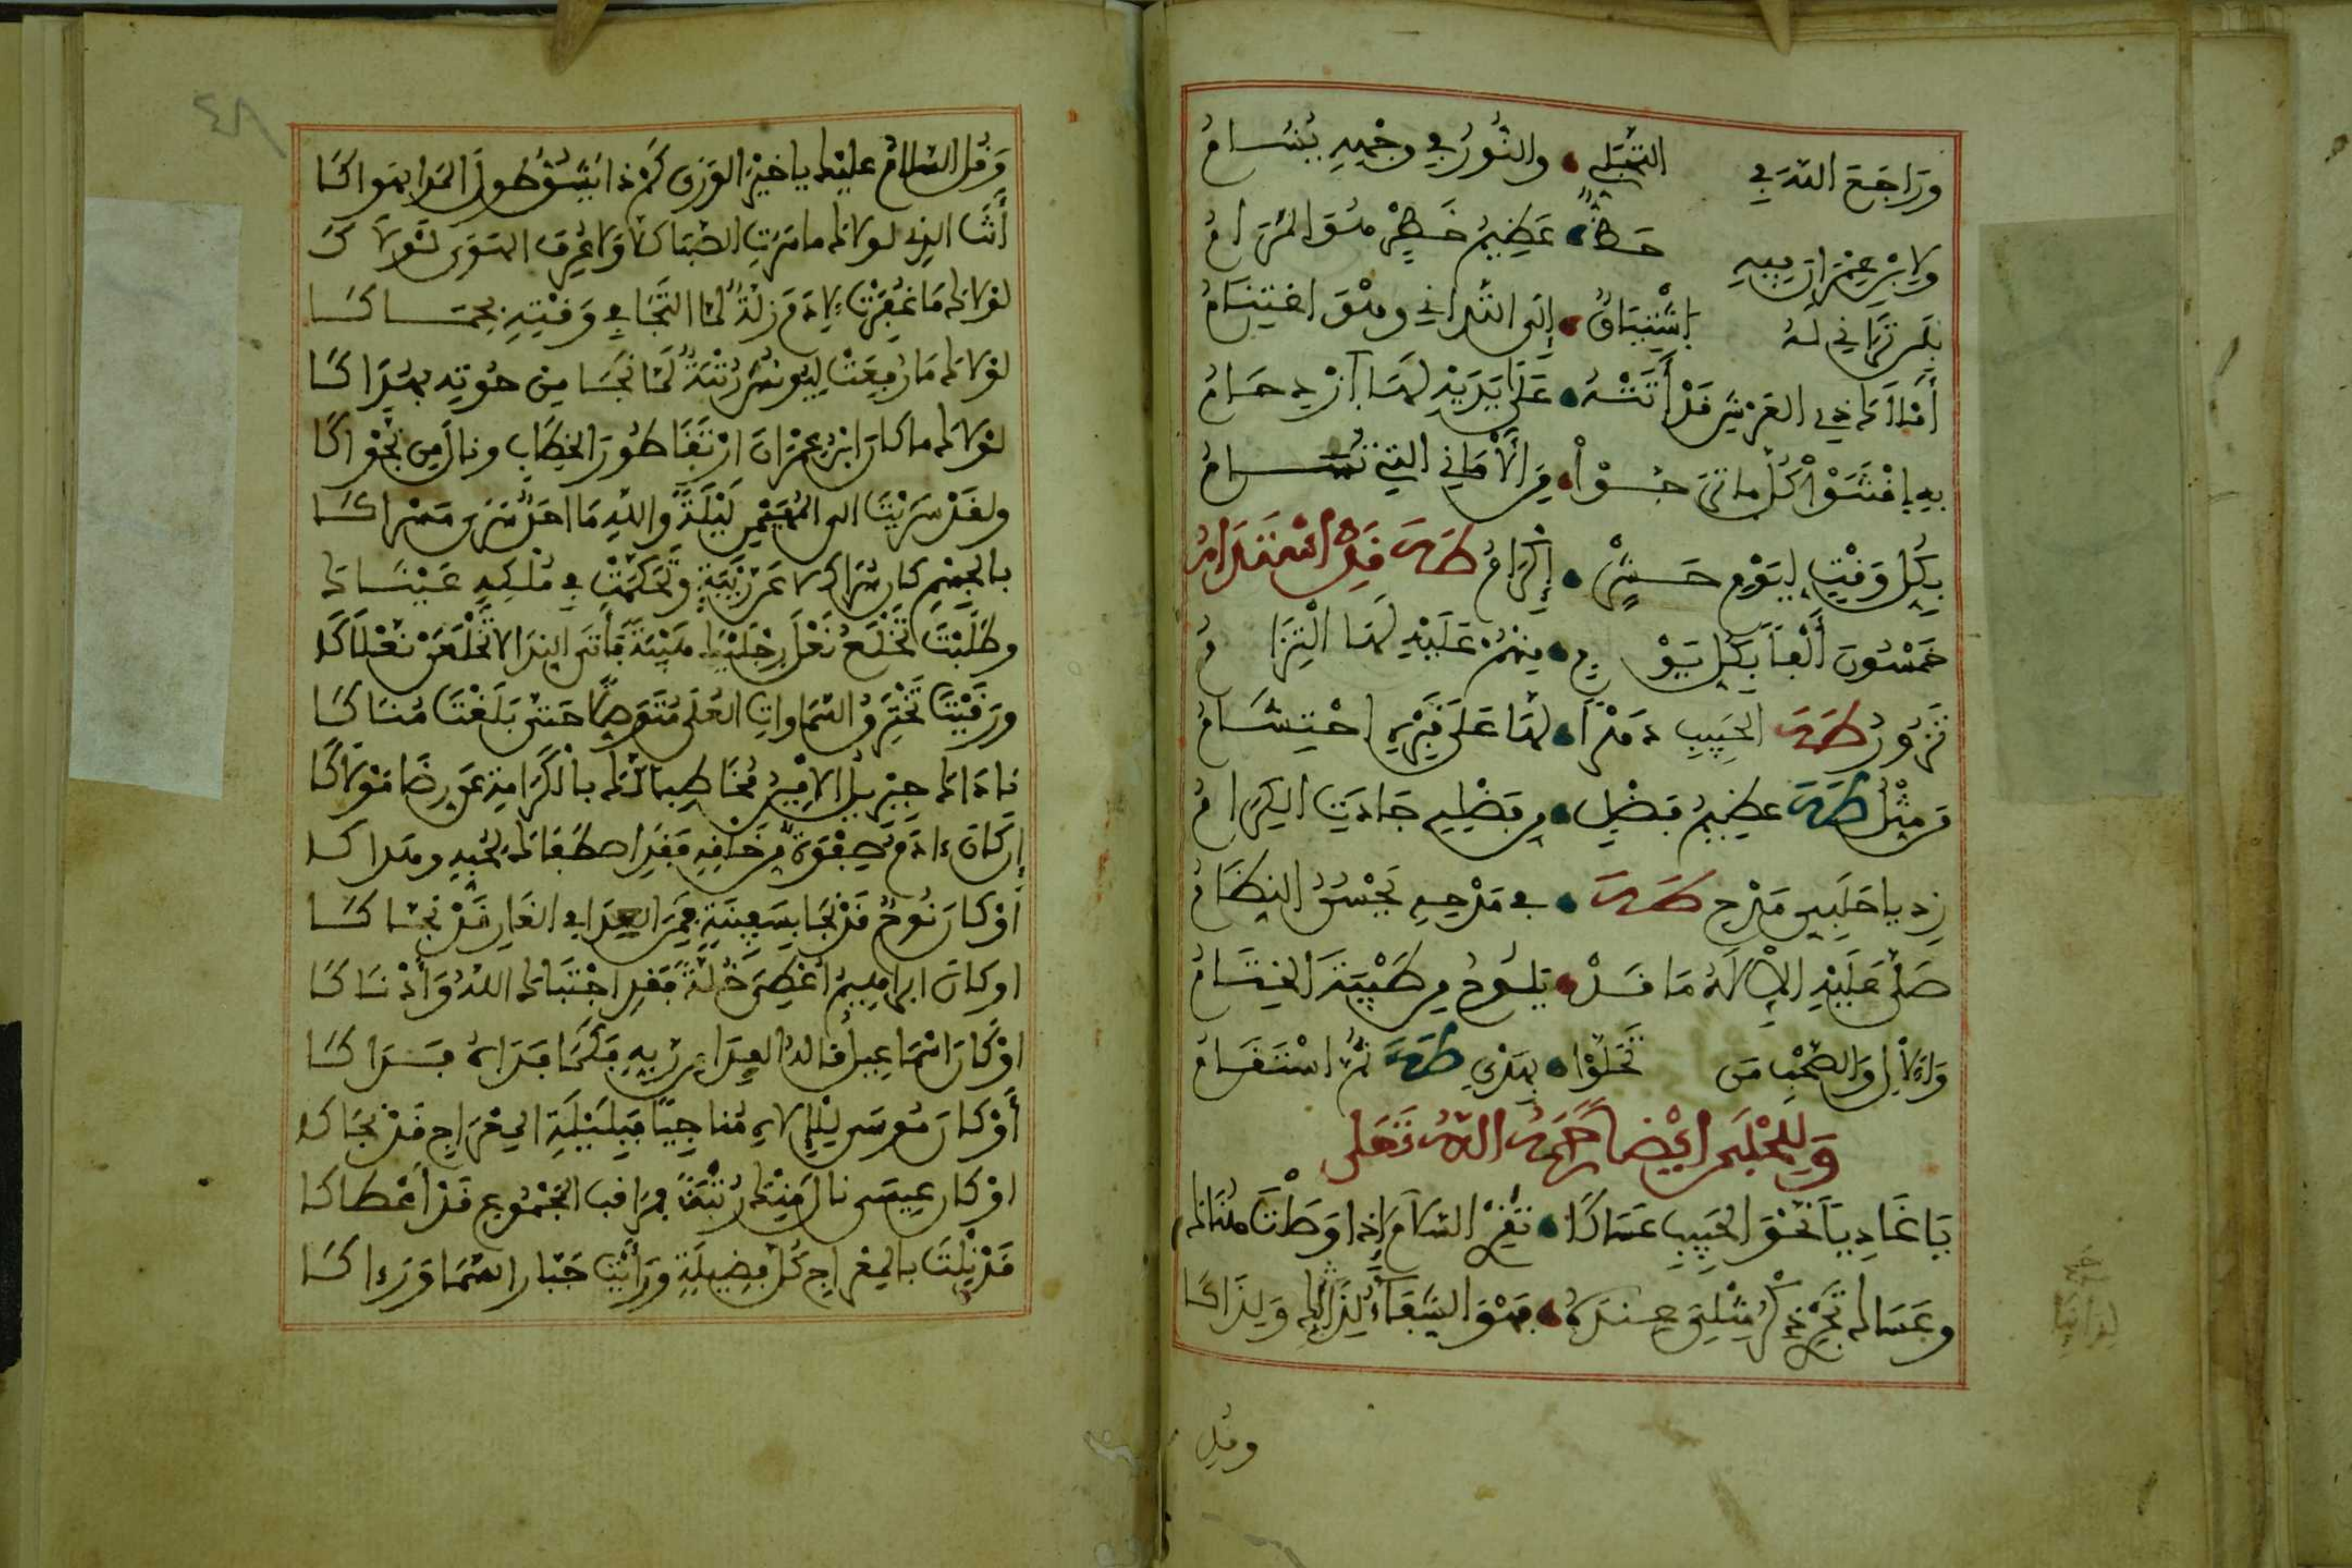 وراجع الله في التجلي • والنور في وجهه يسام
ولابن عمران فيه حظ • عظيم خطر هو المرام
بلن تراني له اشتياق • إلى التداني وهو اغتنام
أملاك ذي العرش قد أتته • على يديه لها ازدحام
به اقتدوا كل ما تمنوا • من الأماني التي تسام
بكل وقت ليوم حشر • إكرام طه قد استدام
خمسون ألفا بكل يوم • منهم عليه لها التزام
تزور طه الحبيب دهرا • لها على قبره احتشام
من مثل طه عظيم فضل • من فضله جادت الكرام
زد يا حلبي مدح طه • في مدحه يحسن النظام
صلى عليه الإله ما قد • يلوح من طيبة الختام
والآل والصحب من تحلوا • بهدي طه ثم استقاموا
وللحلبي أيضا رحمه الله تعالى
يا غاديا نحو الحبيب عساكا • تقر السلام إذا وصلت هناك
وعساك تجري ذكر مثلي عنده • فهو الشفاء لذلك ولذاكا
وقل
٤٨
وقل السلام عليك يا خير الورى كم ذا يشوق طول المدا بهواكا
أنت الذي لولاك ما سرت الصبا كلا ولا عرف الهوى لولاكا
لولاك ما غفرت لآدم زلة لما التجا في وقته بحماكا
لولاك ما رفعت ليونس رتبة لما نجا من حوته بهداكا
لولاك ما كان ابن عمران ارتقا طور الخطاب ونال من نجواكا
ولقد سريت الى المهيمن ليلة والله ما احد سرى مسراكا
بالجسم كان سراك لا عن ريبة وتحكمت في ملكه عيناك
وطلبت تخلع نعل رجليك هيبة فأتى الندا لا تخلعن نعلاكا
ورقيت تخترق السماوات العلى متوصلا حتى بلغت مناكا
ناداك جبريل الأمين مخاطبا لك بالكرامة عن رضا مولاكا
إن كان ءادم صفوة من خلقه فقد اصطفاك لحبه وهداكا
أو كان نوح قد نجا بسفينة فمن العدا في الغار قد نجاكا
او كان ابراهيم أعطي خلة فقد اجتباك الله وأدناكا
او كان اسماعيل نال الفدا من ربه فكما فداه فداكا
أو كان موسى للإلاه مناجيا فبليلة المعراج قد ناجاكا
او كان عيسى نال منك رتبة فمراقب المجموع قد أعطاكا
قد نلت بالمعراج كل فضيلة ورأيت جبار السما ورءاكا